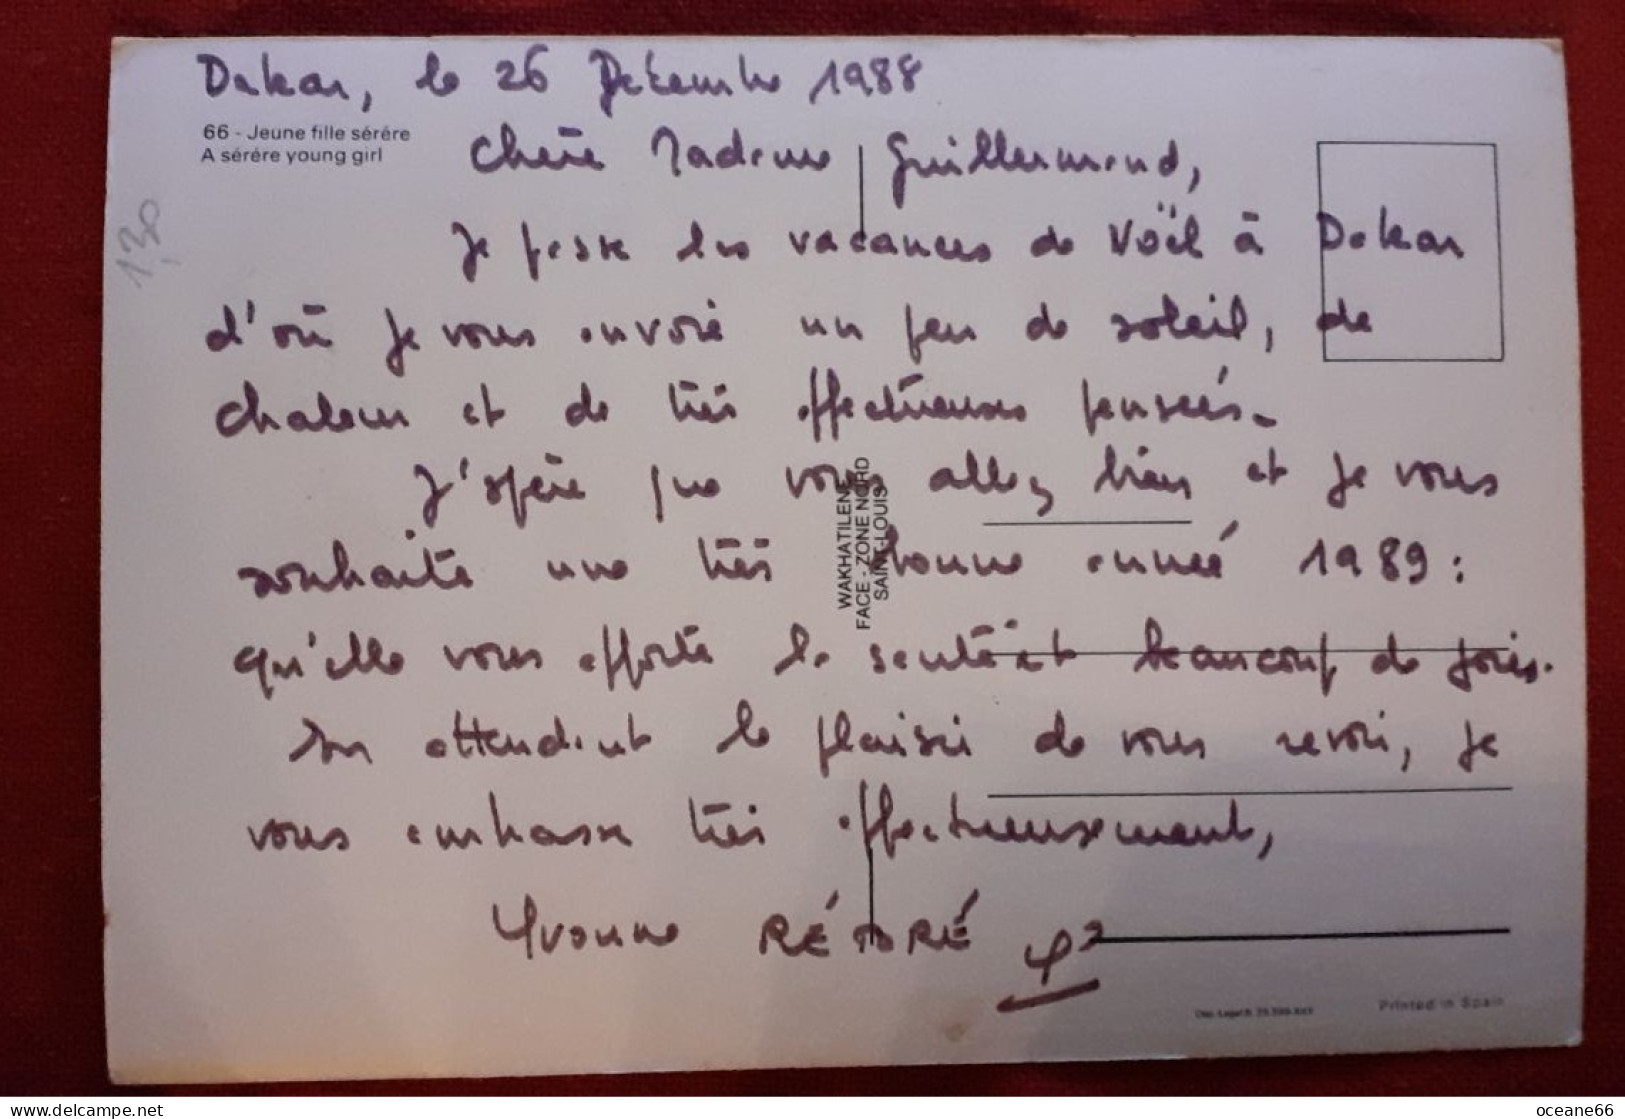 Dakar, le 26 Décembre 1988
66 - Jeune fille sérére
A sérére young girl
Chère Madame Guillermond,
Je passe les vacances de Noël à Dakar
d'où je vous envoie un peu de soleil, de
chaleur et de très affectueuses pensées.
J'espère que vous allez bien et je vous
souhaite une très bonne année 1989 :
qu'elle vous apporte la santé et beaucoup de joies.
En attendant le plaisir de vous revoir, je
vous embrasse très affectueusement,
Yvonne RÉTORÉ
130
WAKHATILENE
FACE - ZONE NORD
SAINT-LOUIS
Printed in Spain
Delcampe.net
oceane66